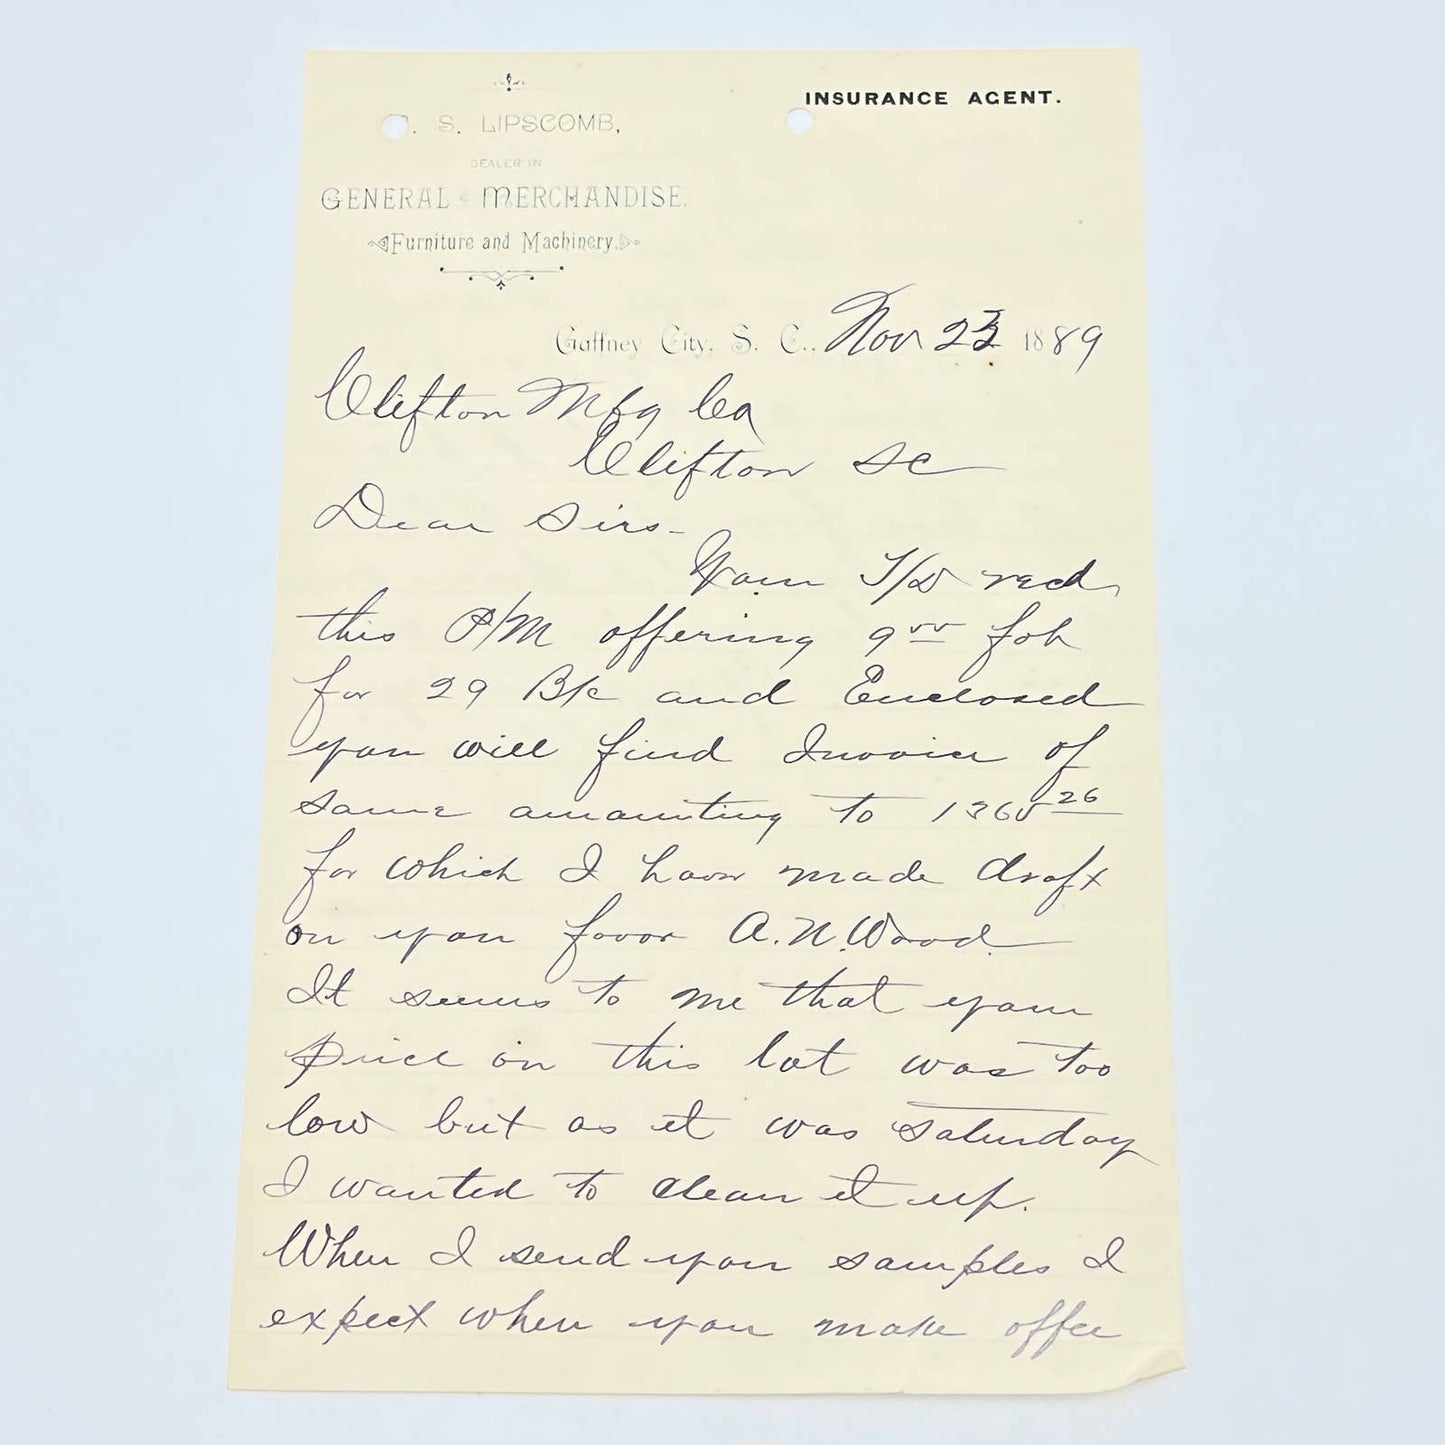 INSURANCE AGENT.
. S. LIPSCOMB,
DEALER IN
GENERAL MERCHANDISE.
Furniture and Machinery.
Gaffney City, S. C., Nov 23 1889
Clifton Mfg Co
Clifton SC
Dear Sirs-
Your recd
this P/M offering 9 fob
for 29 B/c and Enclosed
you will find Invoice of
same amounting to 1365 26
for which I have made draft
on you favor A. N. Wood.
It seems to me that your
price on this lot was too
low but as it was Saturday
I wanted to clean it up.
When I send you samples I
expect when you make offer